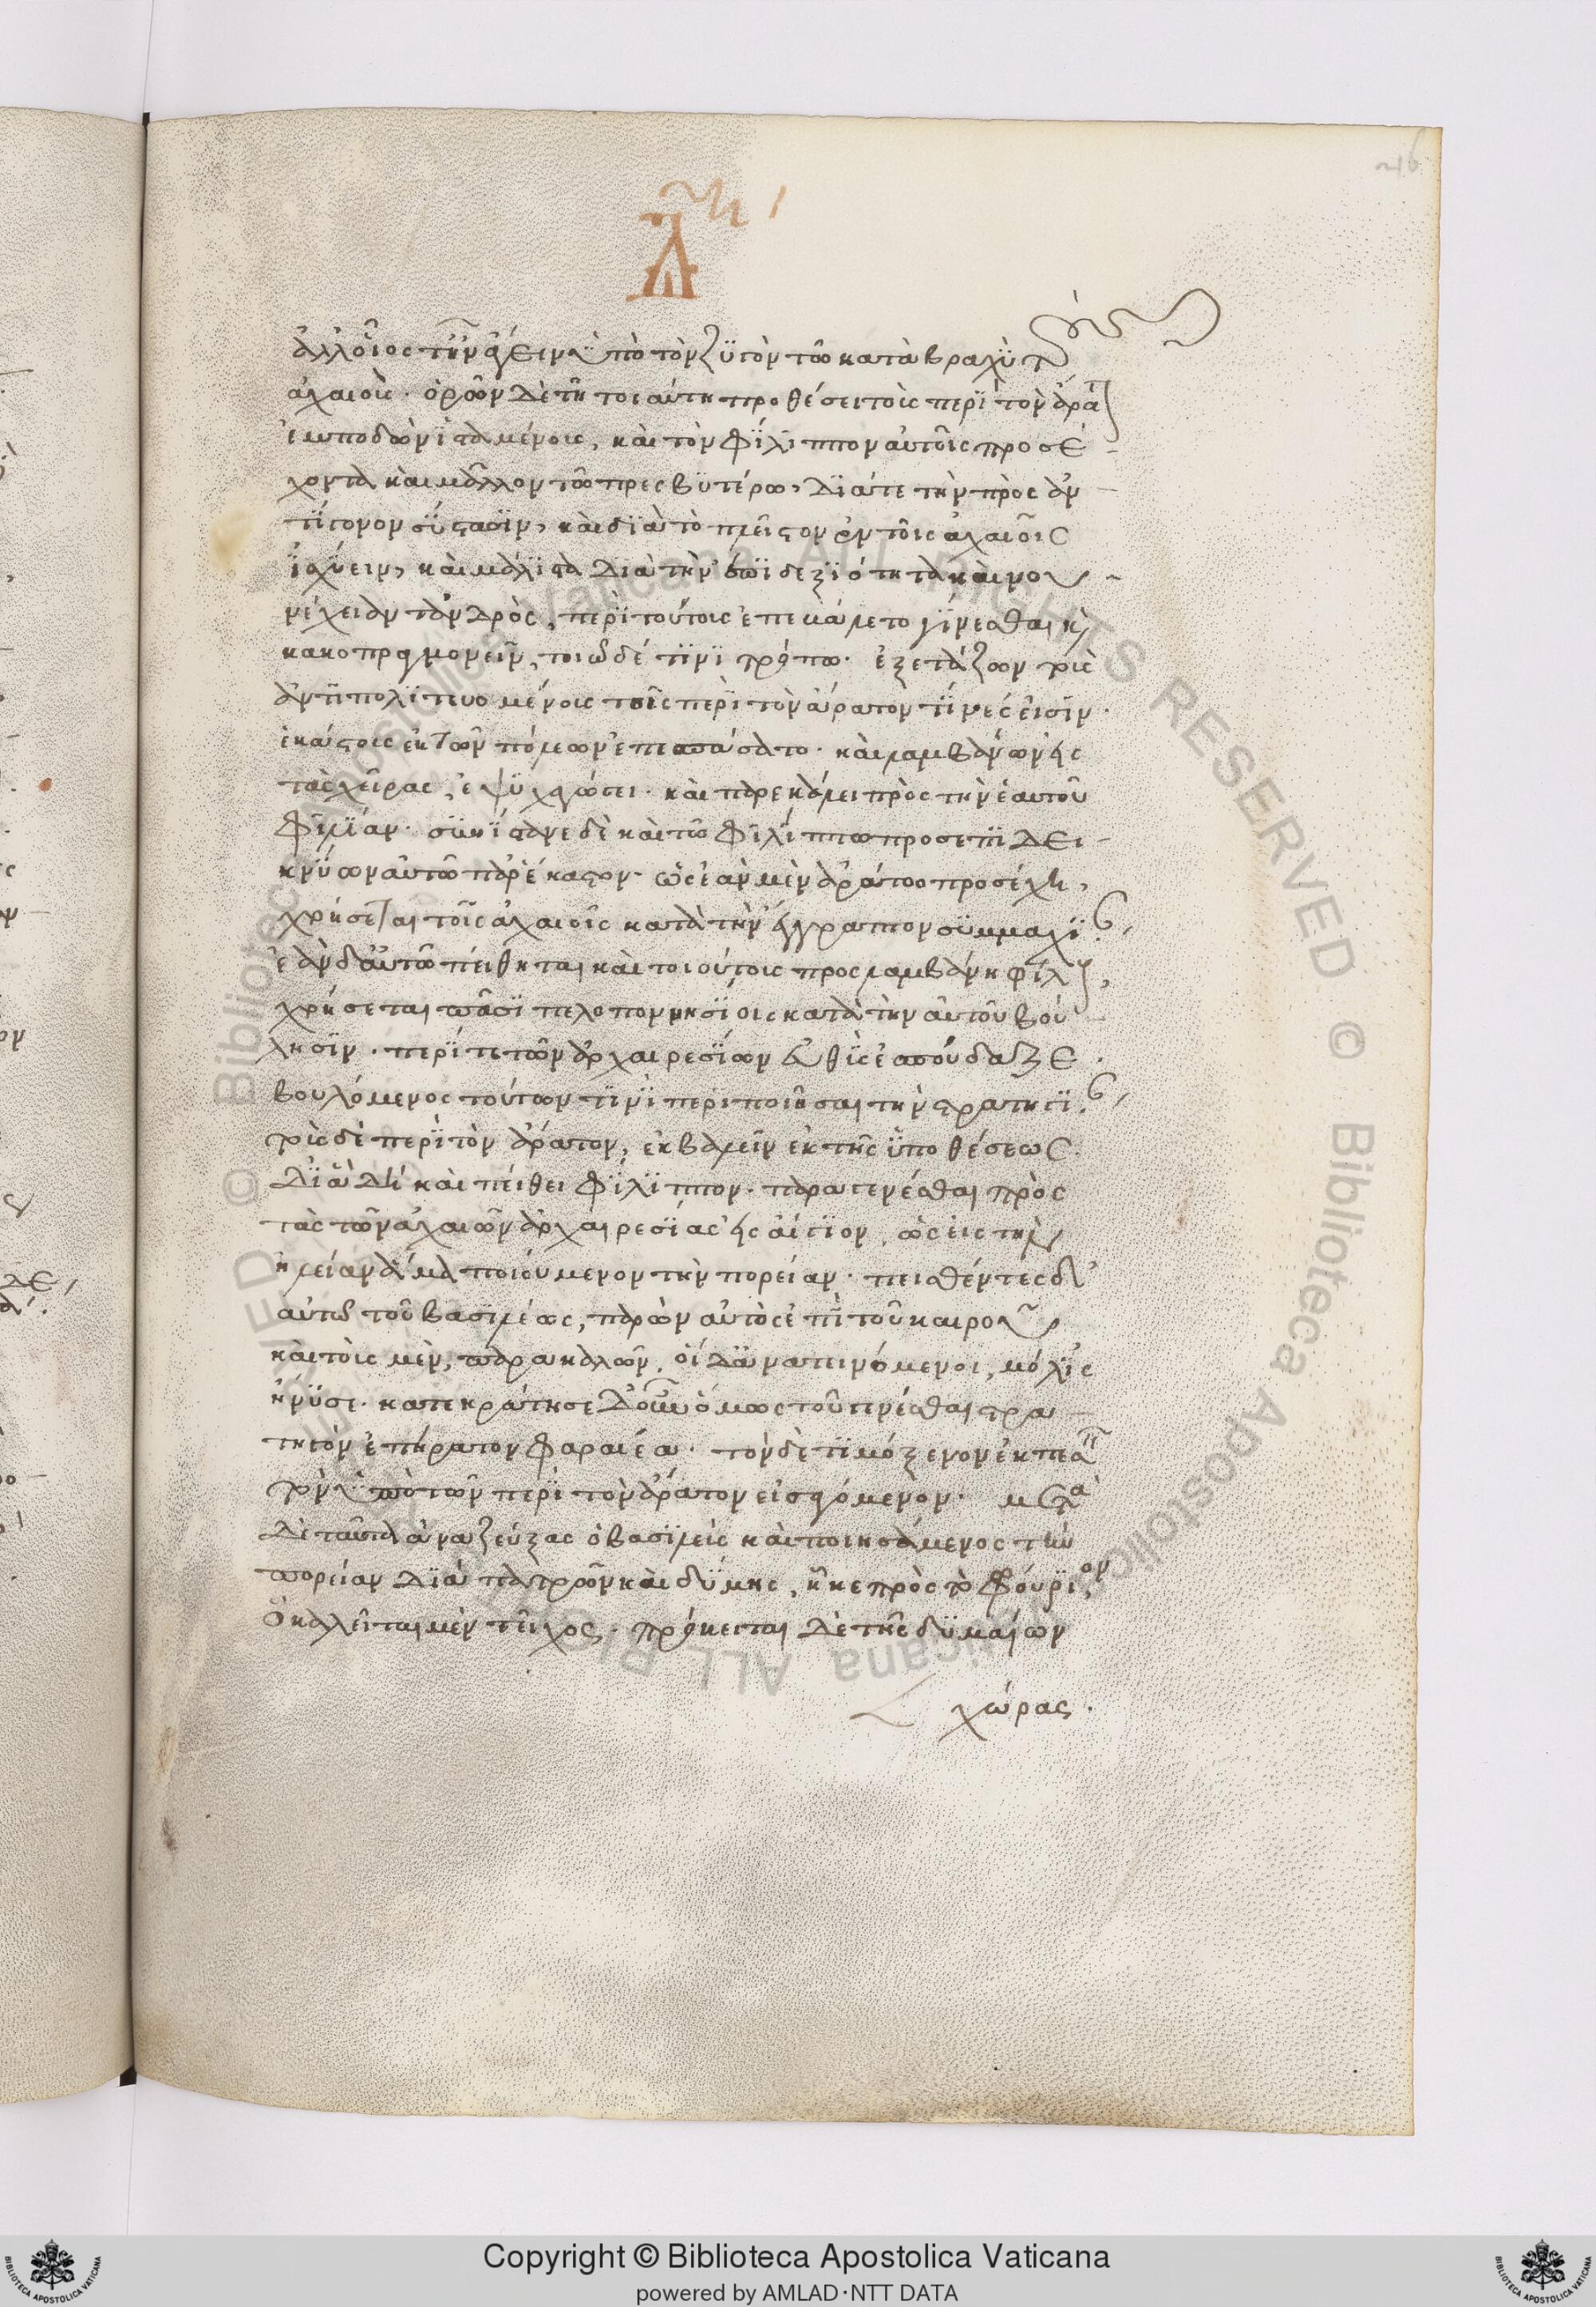 46
ἀλλοῖος τ' ἦν ἄγειν ὑπὸ τὸν ζυγὸν τῶ κατὰ βραχὺ τοὺς
ἀχαιούς. ὁρῶν δὲ τῆ τοιαύτη προθέσει τοὺς περὶ τὸν ἄρατ
ἐμποδὼν ἱσταμένους, καὶ τὸν φίλιππον αὐτοῖς προσέ
χοντα καὶ μᾶλλον τῶ πρεσβυτέρω, διά τε τὴν πρὸς ἀν
τίγονον σύστασιν, καὶ διὰ τὸ πλεῖστον ἐν τοῖς ἀχαιοῖς
ἰσχύειν, καὶ μάλιστα διὰ τὴν ἐπιδεξιότητα καὶ νου
νέχειαν τἀνδρὸς, περὶ τούτους ἐπεβάλετο γίνεσθαι καὶ
κακοπραγμονεῖν, τοιῶδέ τινι τρόπω. ἐξετάζων τοὺς
ἀντιπολιτευομένους τοῖς περὶ τὸν ἄρατον τίνές εἰσὶν.
ἑκάστους ἐκ τῶν πόλεων ἐπεσπάσατο. καὶ λαμβάνων εἰς
τὰς χεῖρας, ἐψυχαγώγει. καὶ παρεκάλει πρὸς τὴν ἑαυτοῦ
φιλίαν. συνίστανε δὲ καὶ τῶ φιλίππω προσεπιδει
κνύων αὐτῶ παρ' ἕκαστον. ὡς ἐὰν μὲν ἀράτω προσέχη,
χρήσεται τοῖς ἀχαιοῖς κατὰ τὴν ἔγγραπτον συμμαχίαν.
ἐὰν δ' αὐτῶ πείθηται καὶ τοιούτους προσλαμβάνη φίλους,
χρήσεται πᾶσι πελοποννησίοις κατὰ τὴν αὐτοῦ βού
λησιν. περί τε τῶν ἀρχαιρεσίων εὐθὺς ἐσπούδαζε.
βουλόμενος τούτων τινὶ περιποιῆσαι τὴν στρατηγίαν.
τοὺς δὲ περὶ τὸν ἄρατον, ἐκβαλεῖν ἐκ τῆς ὑποθέσεως.
διὰ δὴ καὶ πείθει φίλιππον. παραγενέσθαι πρὸς
τὰς τῶν ἀχαιῶν ἀρχαιρεσίας εἰς αἴγιον, ὡς εἰς τὴν
ἠλείαν ἅμα ποιούμενον τὴν πορείαν. πεισθέντες δ'
αὐτῶ τοῦ βασιλέως, παρὼν αὐτὸς ἐπὶ τοῦ καιροῦ
καὶ τοὺς μὲν, παρακαλῶν, οἷς δ' ἀνατεινόμενος, μόλις
ἤνυσε. κατεκράτησε δ' οὖν ὅμως τοῦ γενέσθαι στρα
τηγὸν ἐπήρατον φαραιέα. τὸν δὲ τιμόξενον ἐκπεσ
τὸν ὑπὸ τῶν περὶ τὸν ἄρατον εἰσαγόμενον. μετὰ
δὲ ταῦτα ἀναζεύξας ὁ βασιλεὺς καὶ ποιησάμενος τὴν
πορείαν διὰ πατρῶν καὶ δύμης, ἧκε πρὸς τὸ φρούριον,
ὃ καλεῖται μὲν τεῖχος. πρόκειται δὲ τῆς δυμαίων
χώρας.
© Biblioteca Apostolica Vaticana ALL RIGHTS RESERVED
Copyright © Biblioteca Apostolica Vaticana
powered by AMLAD·NTT DATA